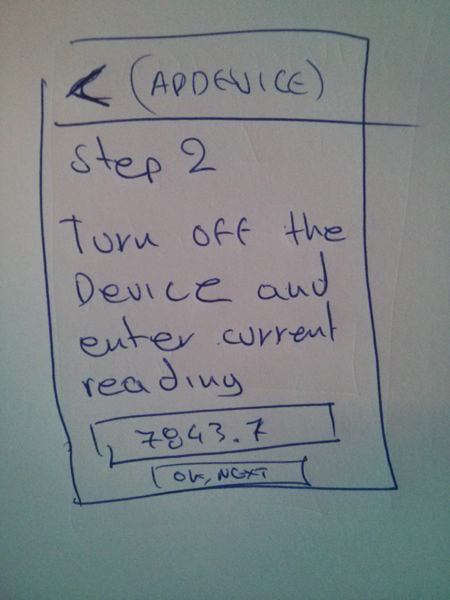 (APDEVICE)
Step 2
Turn off the
Device and
enter current
reading
7843.7
OK, NEXT